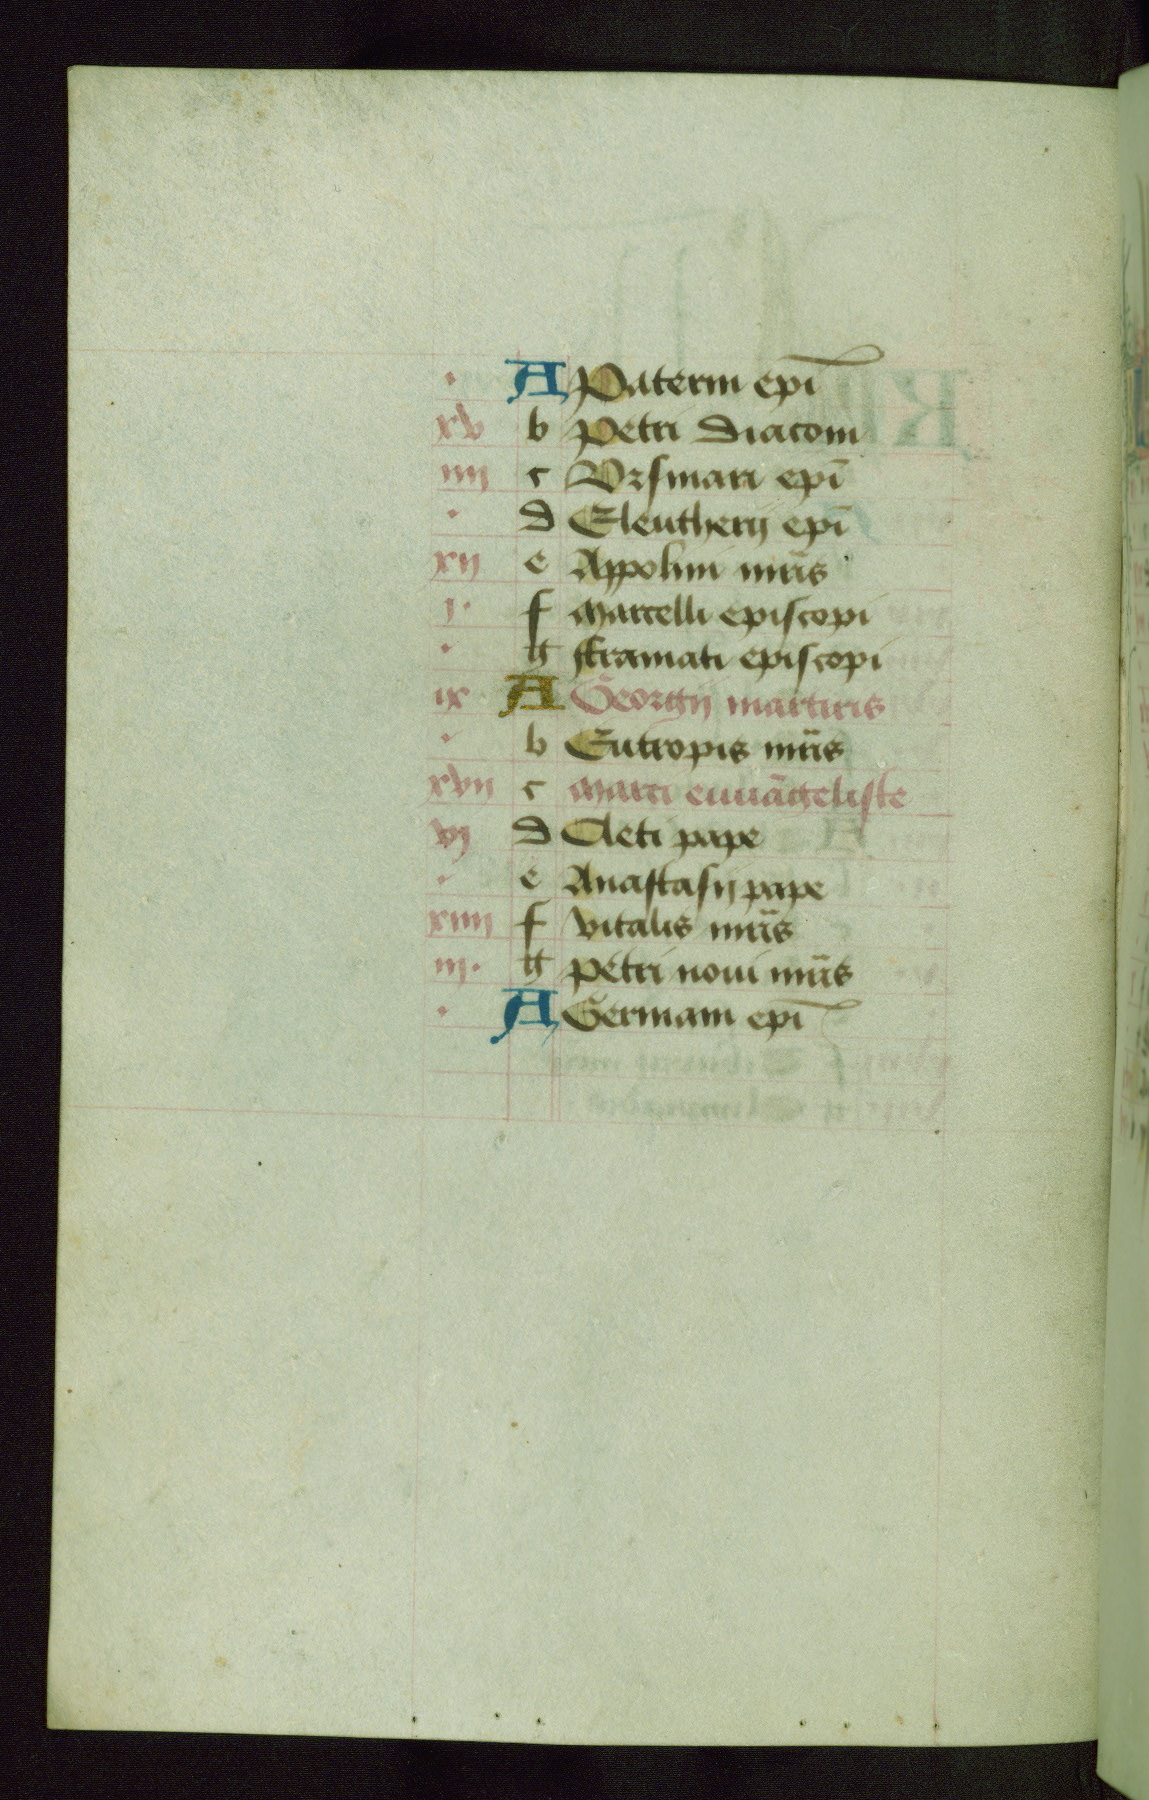 · A Paterni epī
xv b Petri diaconi
iiij c Vrsmari epī
· d Eleutherij epī
xij e Appolini mr̄is
j· f Marcelli episcopi
· g episcopi
ix A Georgij martiris
· b Eutropis mr̄is
xvij c Marci euuāgeliste
vj d Cleti pape
· e Anastasij pape
xiiij f vitalis mr̄is
iij· g petri noui mr̄is
· A Germani epī